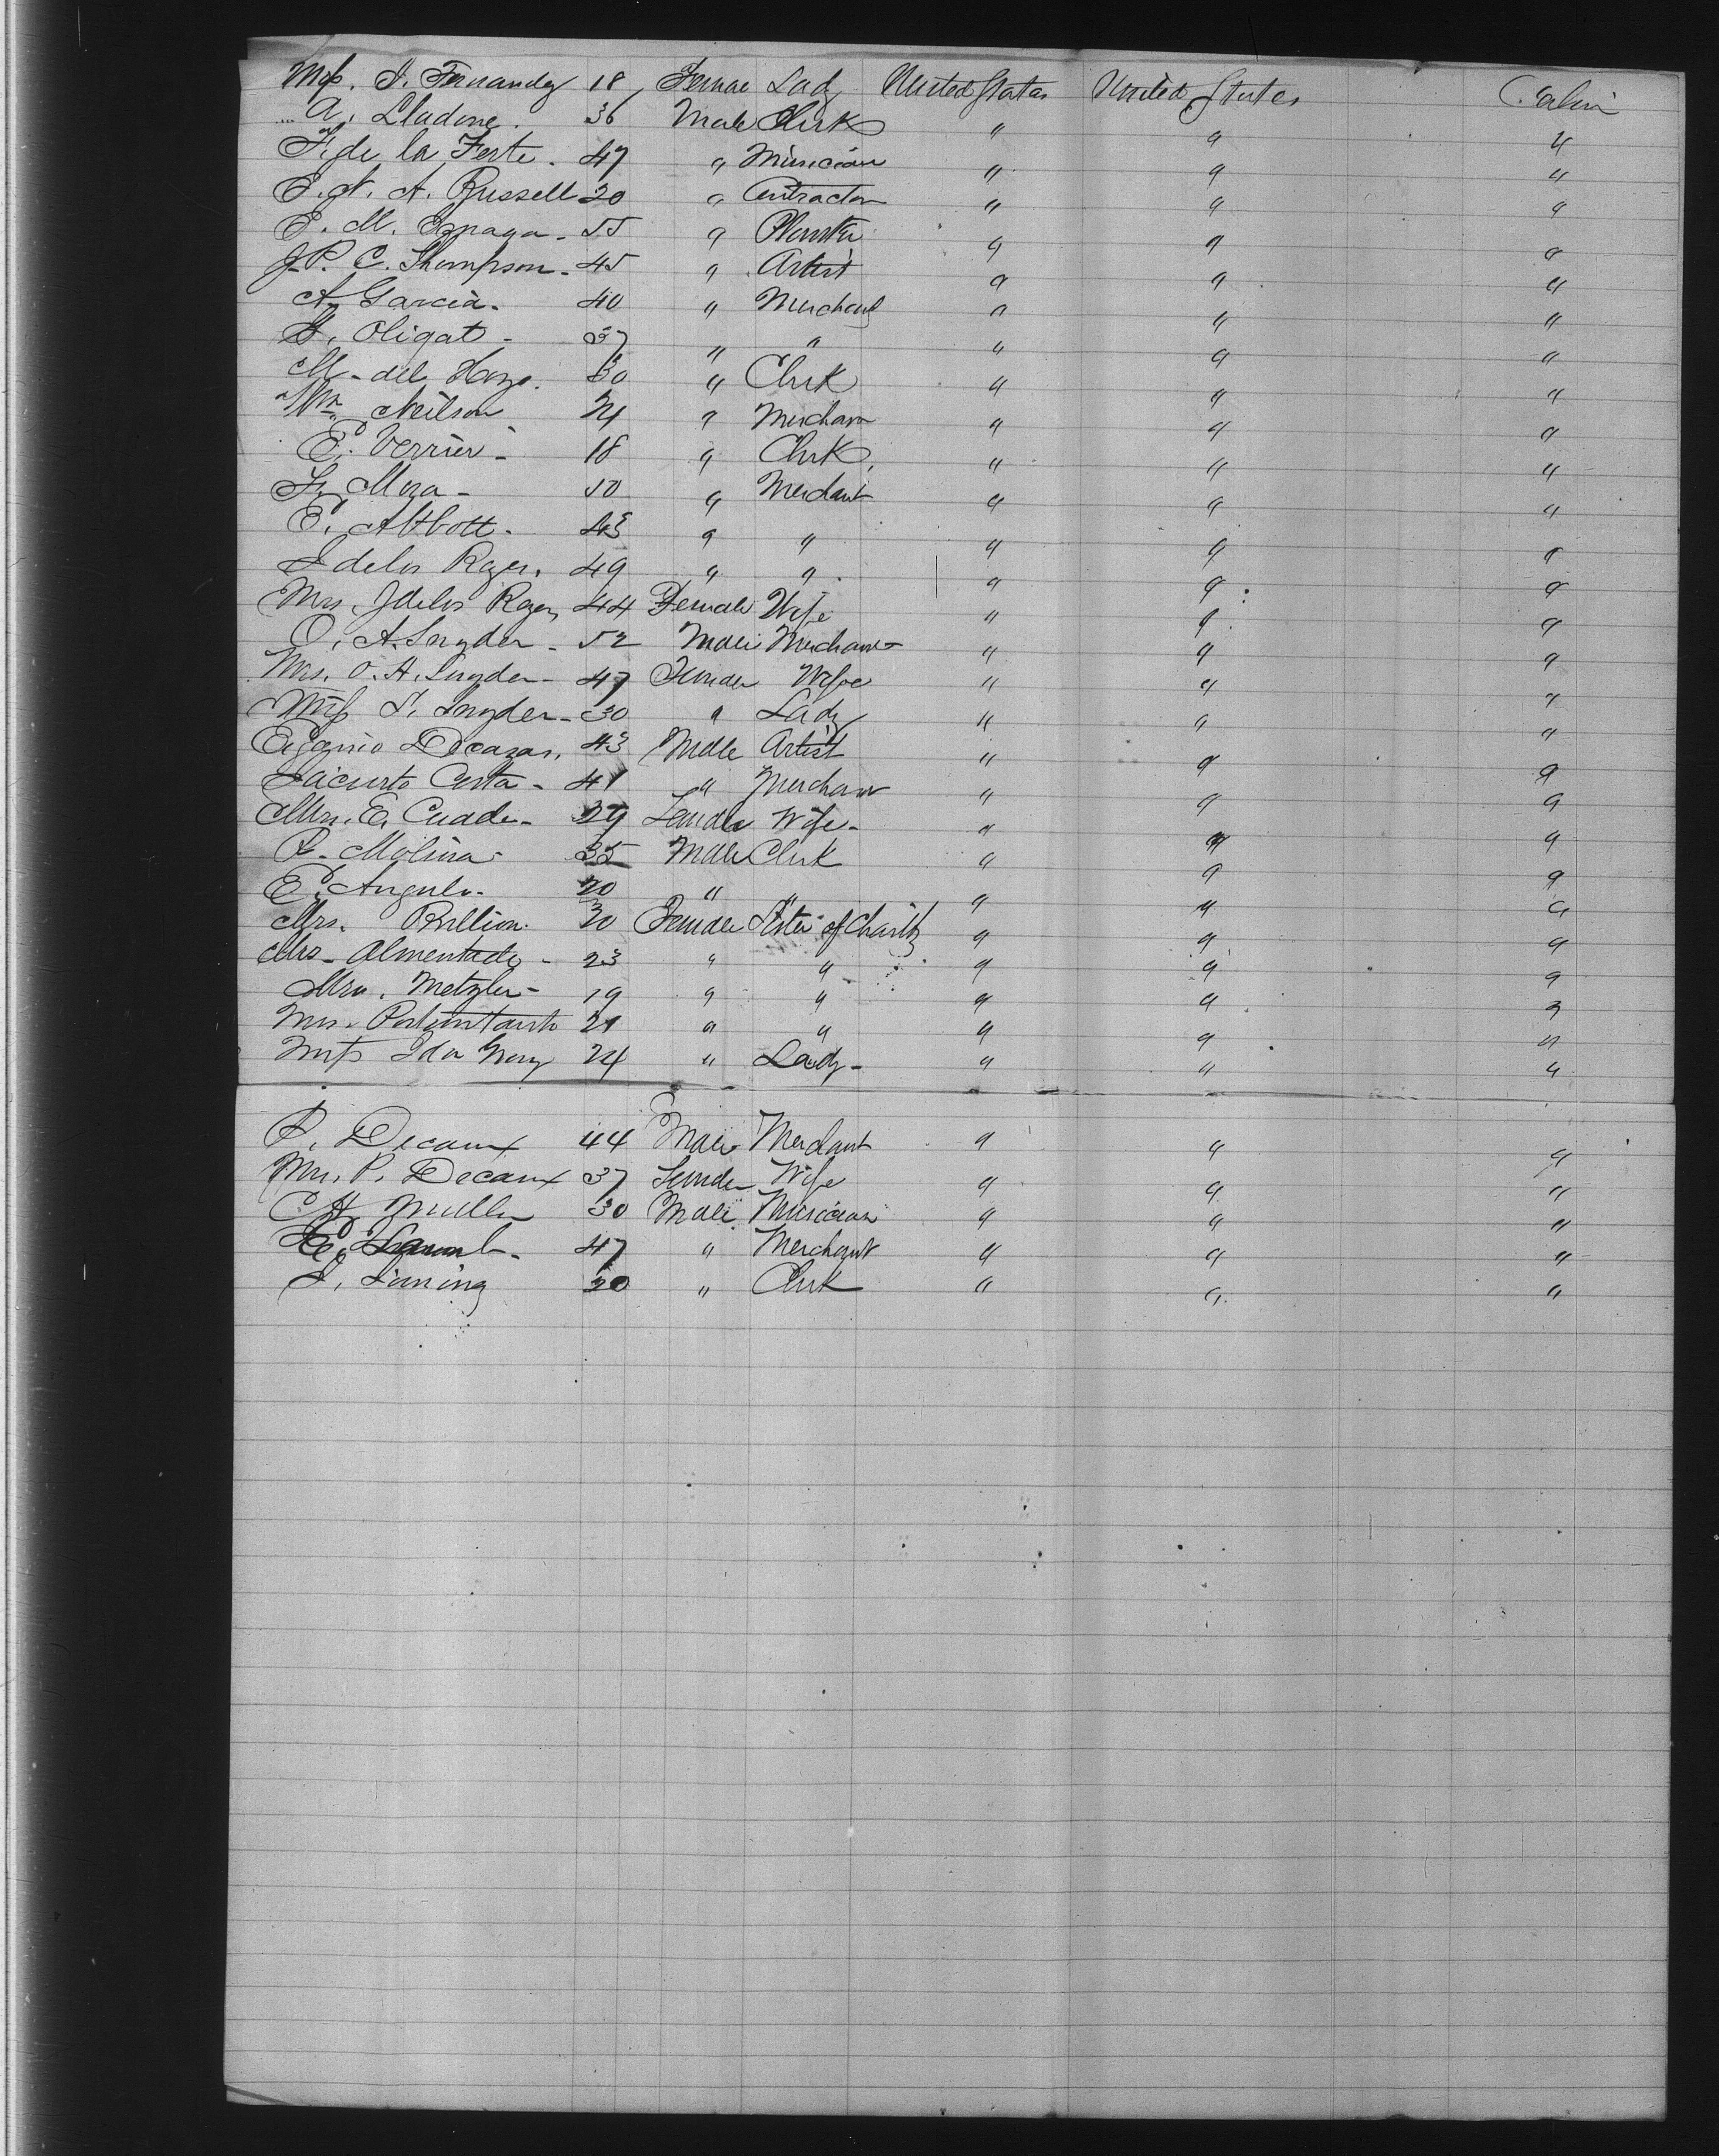 Miss. I. Fernandez 18 Female Lady United States United States Cabin
A. Lladone. 36 Male Clerk " " "
F. de la Ferte. 47 " Musician " " "
E. N. A. Russell 20 " Contractor " " "
E. M. 55 " Planter " " "
J. P. C. Thompson. 45 " Artist " " "
A. Garcia. 40 " Merchant " " "
Oligat - 37 " " " " "
M. del Hoyo. 30 " Clerk " " "
Wm Neilson 24 " Merchan " " "
E. Verrier - 18 " Clerk " " "
Mora - 50 " Merchant " " "
E. Abbott. 43 " " " " "
J de los Reyes. 49 " " " " "
Mrs. J de los Reyes 44 Female Wife " " "
O. A. Snyder - 52 Male Merchant " " "
Mrs. O. A. Snyder - 47 Female Wife " " "
Miss I. Snyder - 30 " Lady " " "
Eugenio Decazas. 43 Male Artist " " "
Jacinto Costa - 41 " Merchant " " "
Mrs. E. Cuade - 29 Female Wife - " " "
P. Molina - 35 Male Clerk " " "
E. Angulo. 20 " " " " "
Mrs. Rullion. 30 Female Sister of Charity " " "
Mrs - - 23 " " " " "
Mrs. Metzler - 19 " " " " "
Mrs. 21 " " " " "
Miss Ida 24 " Lady - " " "
P. Decaux 44 Male Merchant " " "
Mrs. P. Decaux 37 Female Wife " " "
C. H. Muller 30 Male Musician " " "
47 " Merchant " " "
20 " Clerk " " "